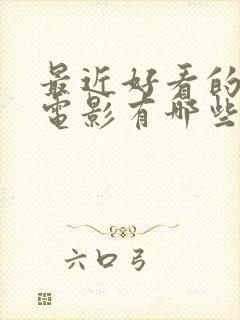 最近好看的
電影有哪些
六口弓